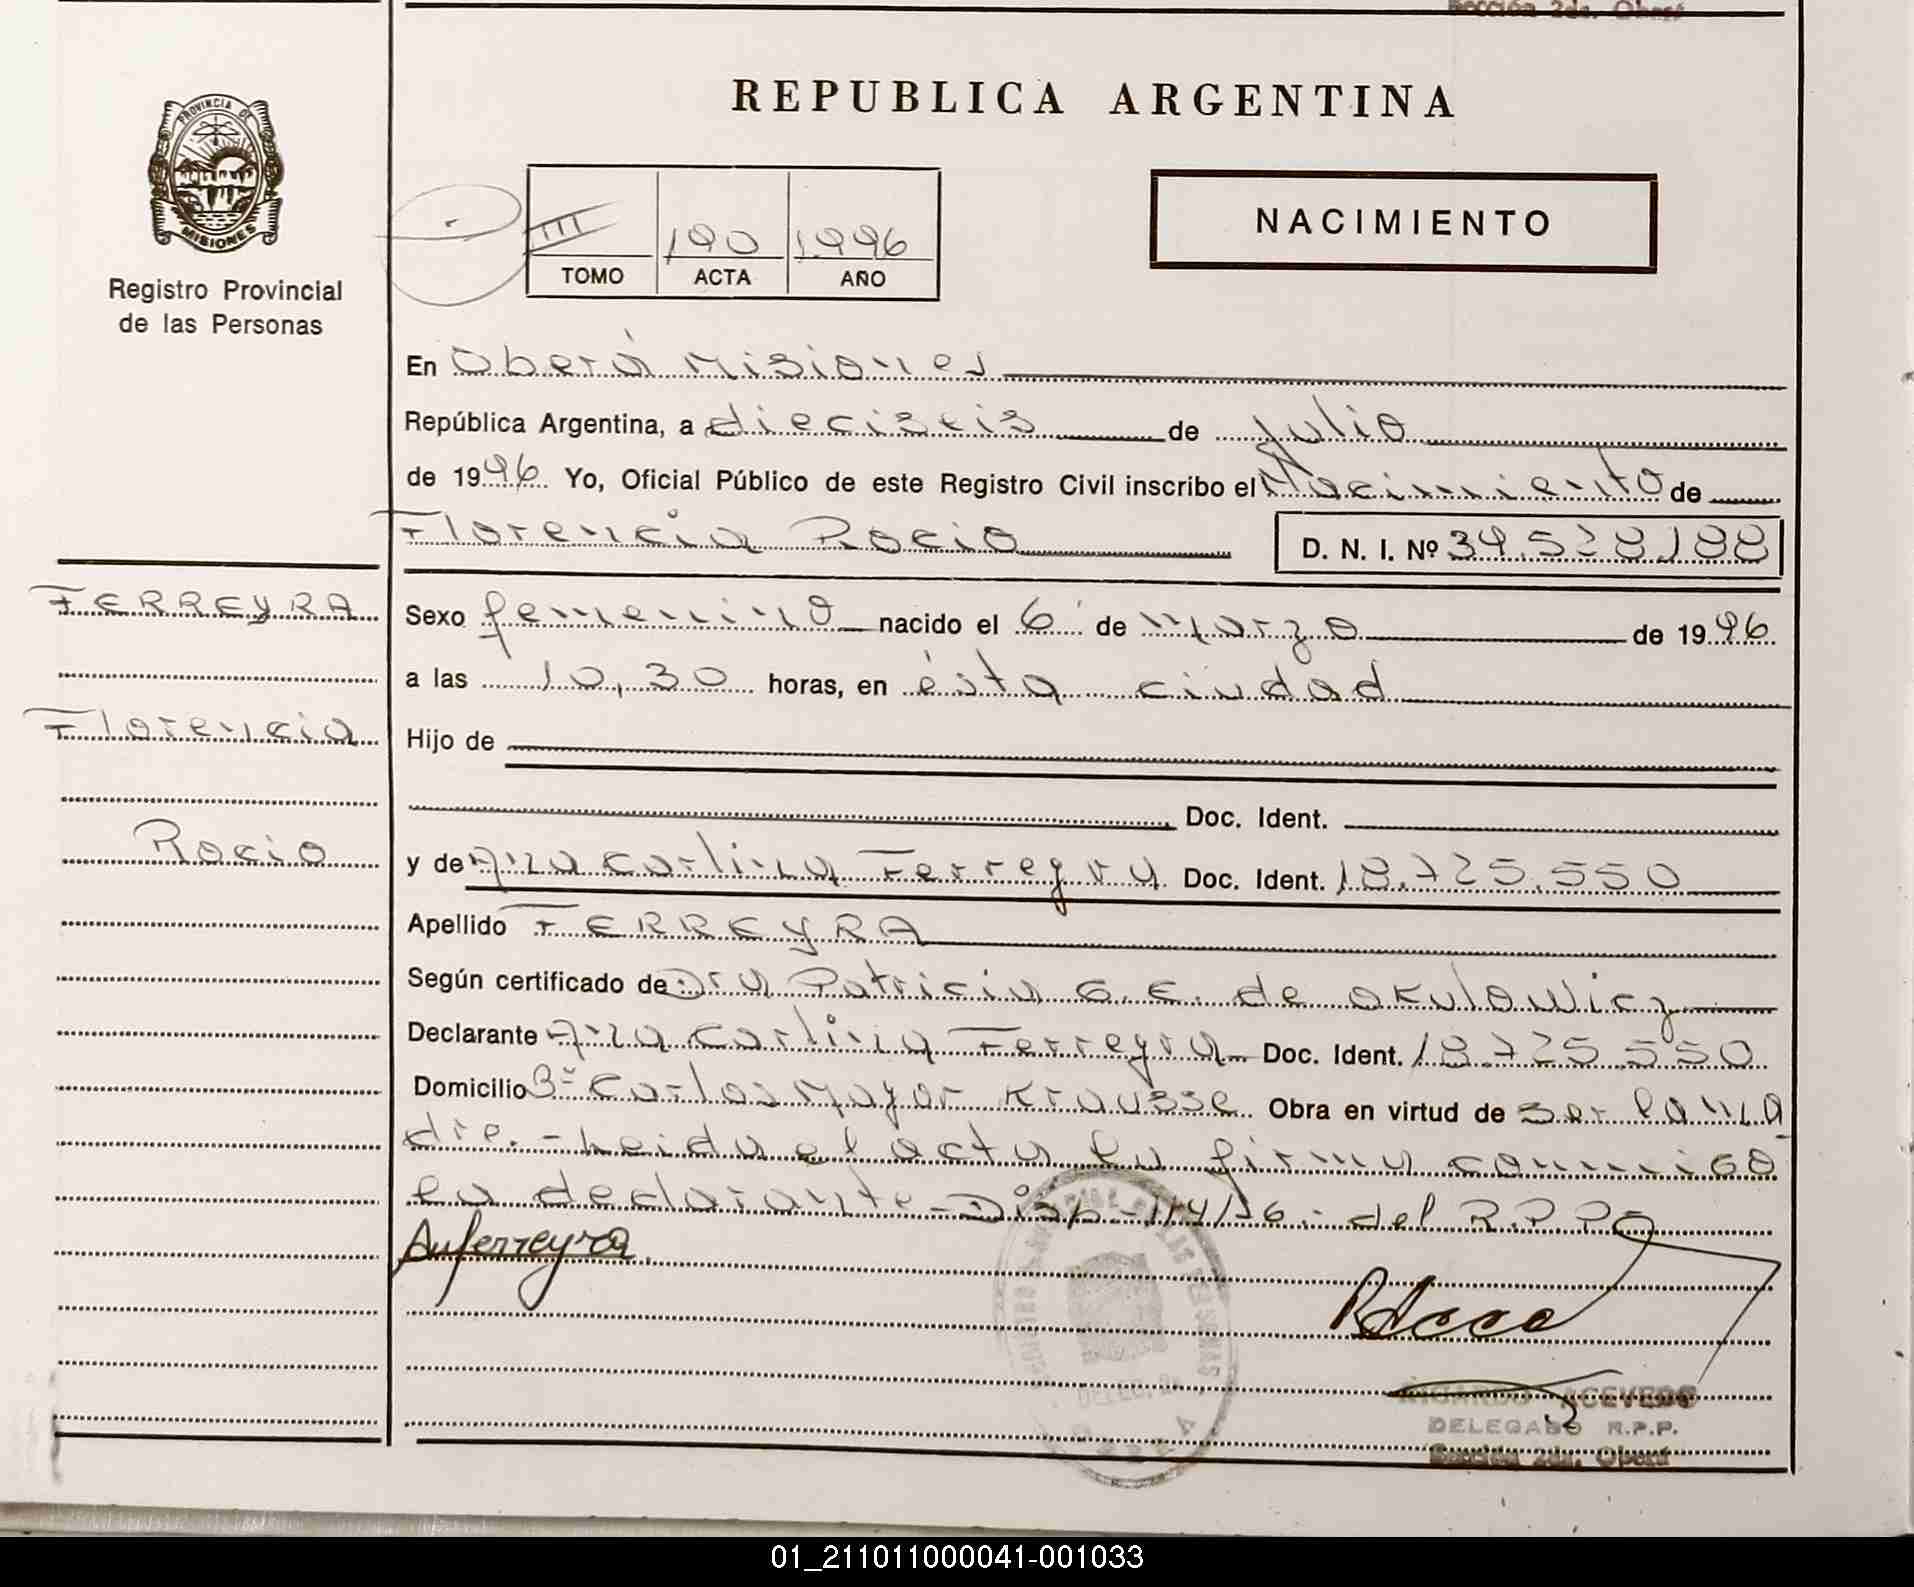 Sección 2da. Oberá
REPUBLICA ARGENTINA
PROVINCIA DE
MISIONES
Registro Provincial
de las Personas
III 190 1996
TOMO ACTA AÑO
NACIMIENTO
En Oberá Misiones
República Argentina, a dieciseis de julio
de 1996. Yo, Oficial Público de este Registro Civil inscribo el Nacimiento de
Florencia Rocio D. N. I. Nº 39.528.188
FERREYRA
Sexo femenino nacido el 6 de marzo de 1996.
a las 10,30 horas, en ésta ciudad
Florencia
Hijo de
Doc. Ident.
Rocio
y de Ana Carlina Ferreyra Doc. Ident. 18.725.550
Apellido FERREYRA
Según certificado de Dra Patricia G. E. de Okulowicz
Declarante Ana Carlina Ferreyra Doc. Ident. 18.725.550
Domicilio Bº Carlos Mayor Krausse. Obra en virtud de ser la ma
dre. - Leida el acta la firma conmigo
la declarante - Disp - 114/96 - del R.P.P.
Anferreyra.
RICARDO ACEVEDO
DELEGADO R.P.P.
Sección 2da. Oberá
01_211011000041-001033